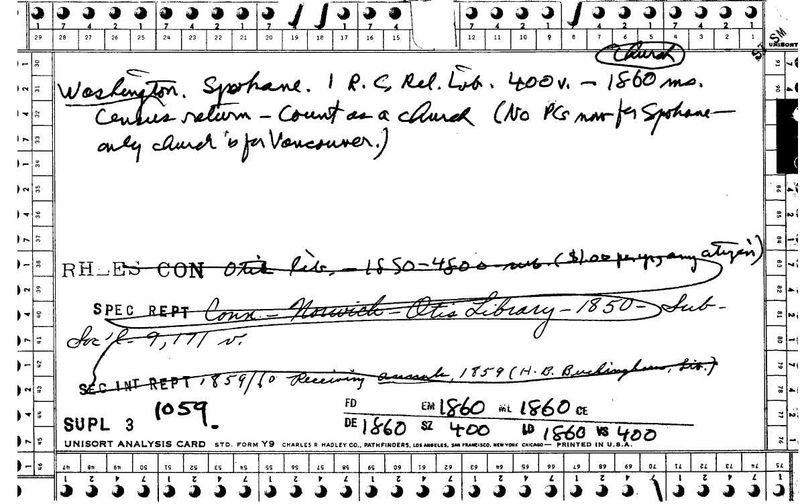 Church
SZ SM
UNISORT
Washington. Spokane. 1 R.C. Rel. Lib. 400 v. – 1860 ms.
Census return – Count as a church (No PCs now for Spokane –
only church is for Vancouver.)
RHLES CON Otis Lib. – 1850 – 4800 ($1.00 per yr, any citizen)
SPEC REPT Conn – Norwich – Otis Library – 1850 – Sub-
Soc'l – 9,171 v.
SEC INT REPT 1859/60 Receiving 1859 (H.B. Buckingham, Lib.)
SUPL 3 1059.
FD EM 1860 ML 1860 CE
DE 1860 SZ 400 LD 1860 VS 400
UNISORT ANALYSIS CARD STD. FORM Y9 CHARLES R HADLEY CO., PATHFINDERS, LOS ANGELES, SAN FRANCISCO, NEW YORK CHICAGO — PRINTED IN U.S.A.